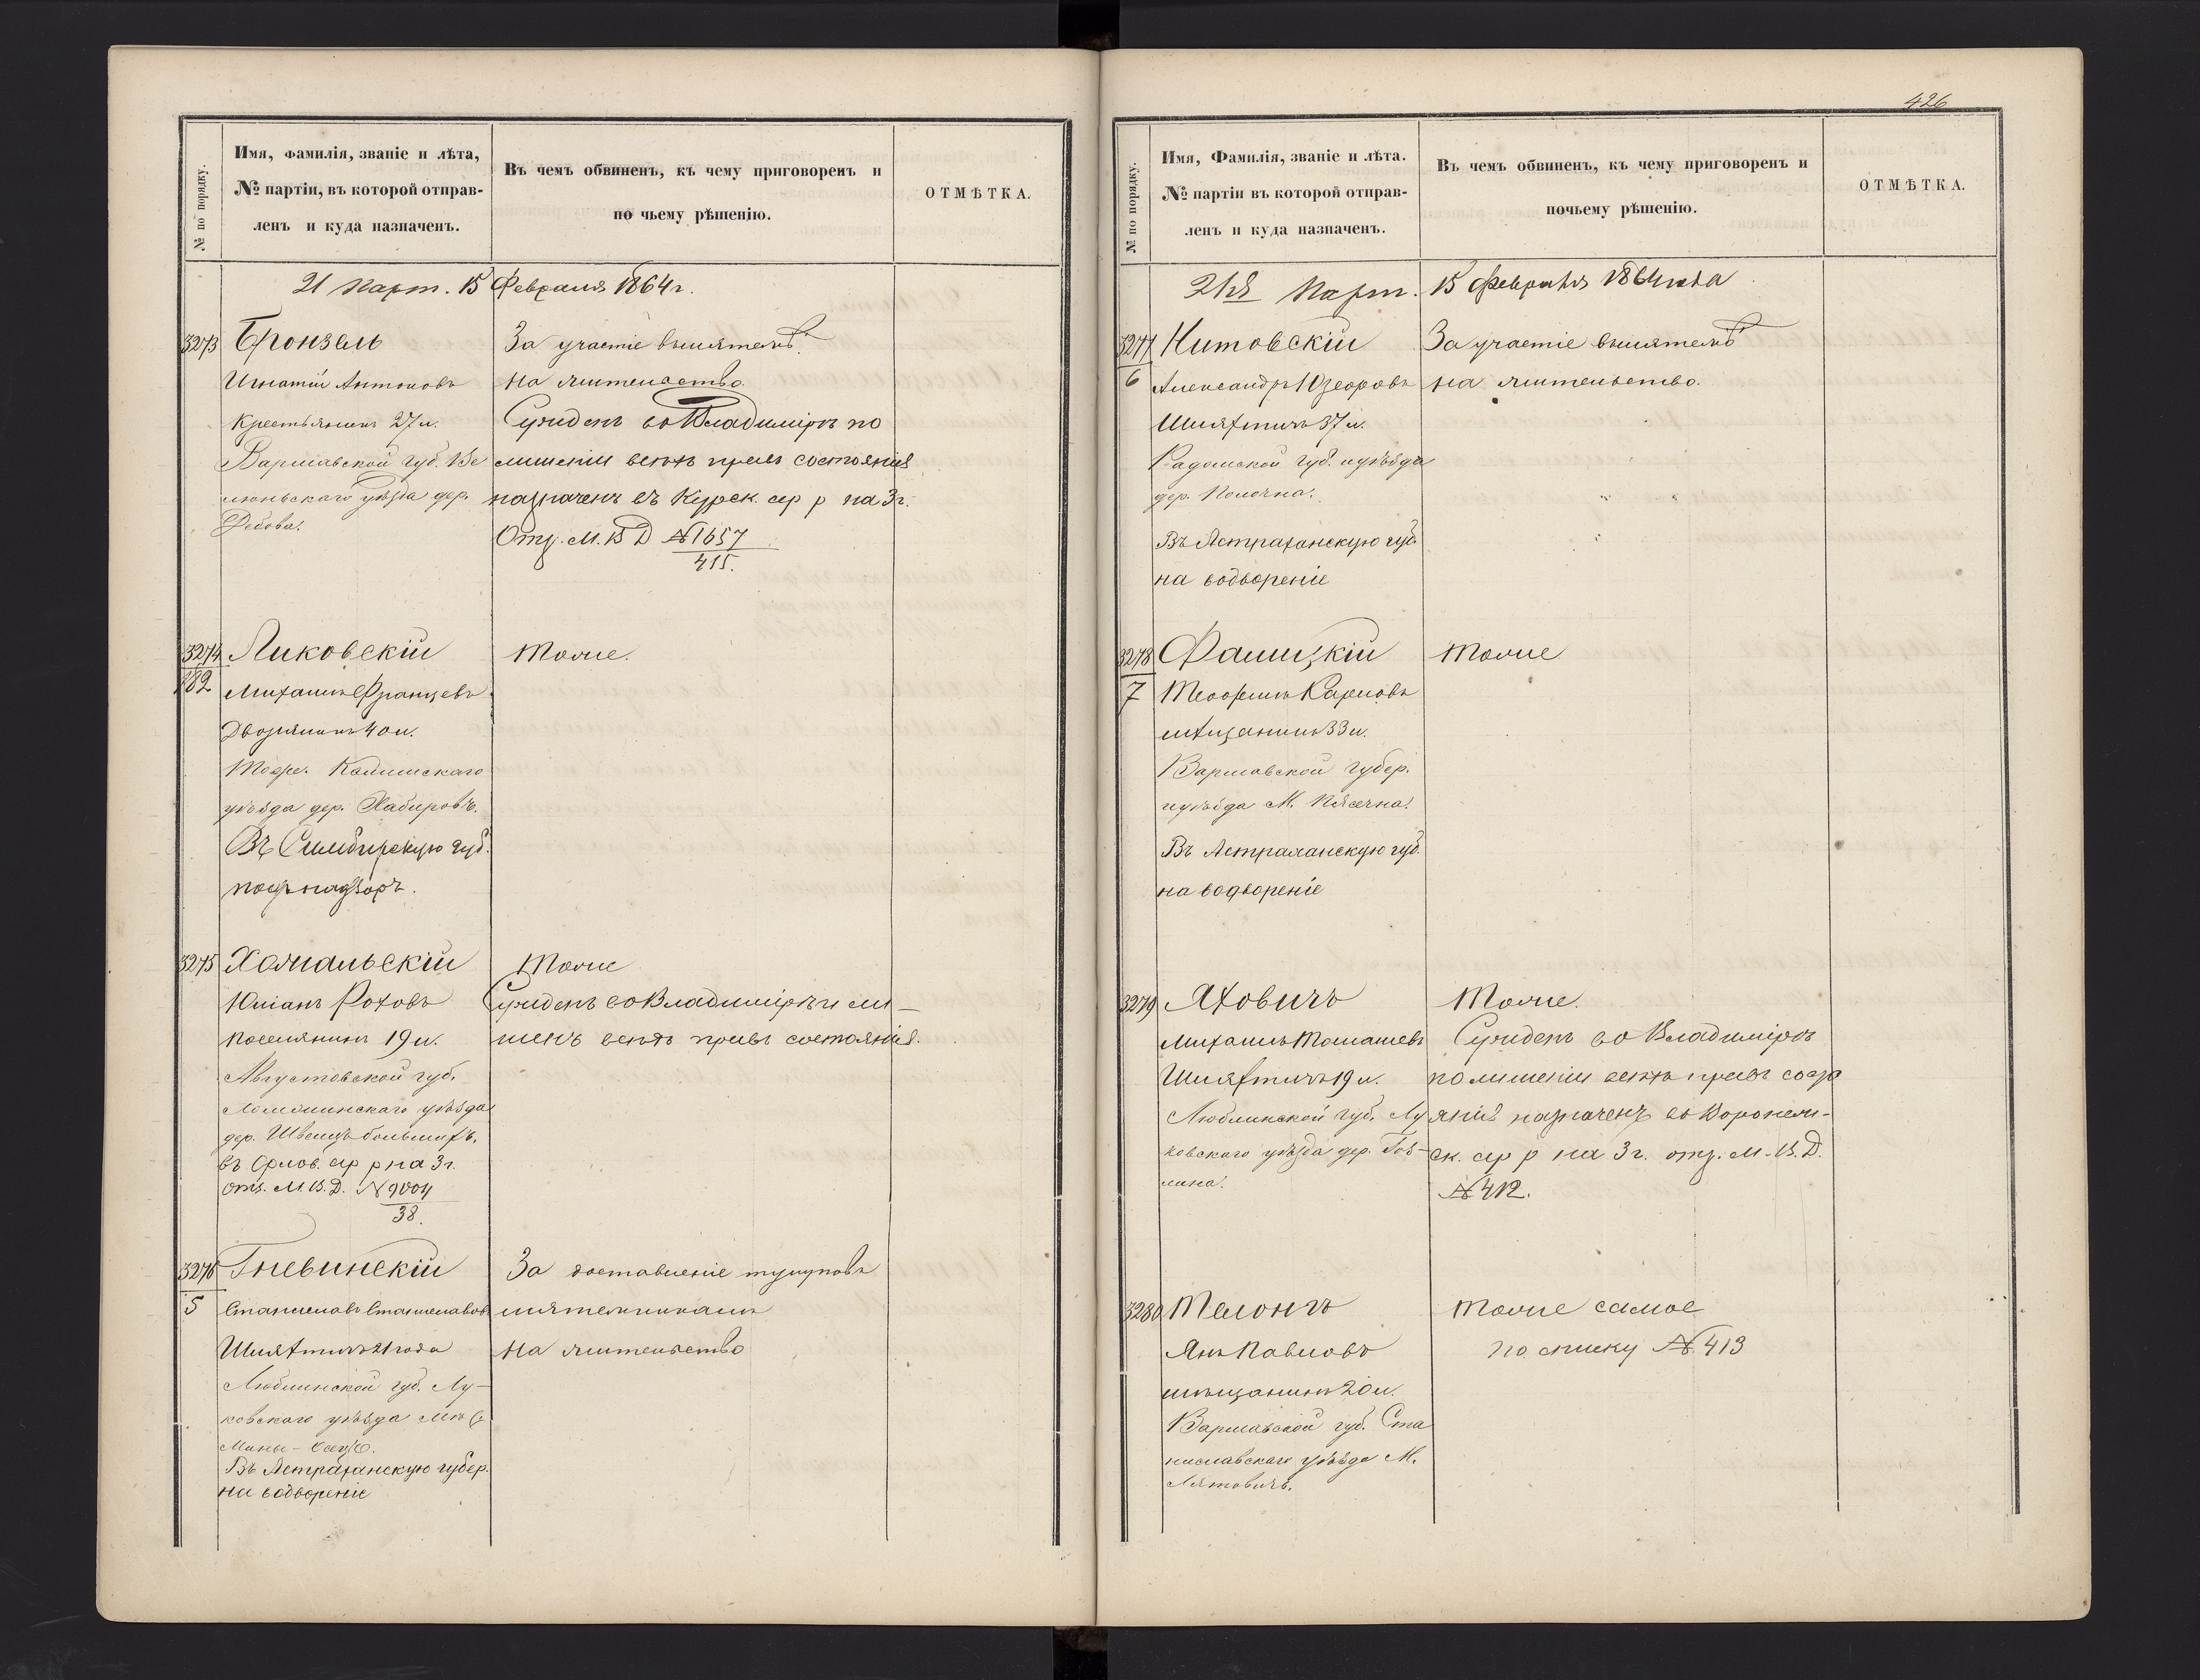 № по порядку.
Имя, фамилія, званіе и лѣта,
№ партіи, въ которой отправ-
ленъ и куда назначенъ.
Въ чемъ обвиненъ, къ чему приговоренъ и
по чьему рѣшенію.
ОТМѢТКА.
21 Парт. 15 Февраля 1864 г.
3273
Бронзель
Игнатій Антоновъ
Крестьянинъ 27 л.
Варшавской губ. Ве
люньскаго уѣзда дер.
За участіе въ мятежѣ
на жительство.
Сужденъ во Владимірѣ по
лишеніи всѣхъ правъ состоянія
назначенъ въ Курск. ар р на 3 г.
Отз. М. В Д № 1657
415.
3274
182
Ликовскій
Михаилъ Францевъ
Дворянинъ 40 л.
Тоже. Калишскаго
уѣзда дер.
Въ Симбирскую губ.
под надзоръ.
Тоже.
3275
Хомальскій
Юліанъ Роховъ
Поселянинъ 19 л.
Августовской губ.
Ломжинскаго уѣзда
дер.
въ Орлов. ар р на 3 г.
отз. М. В. Д. № 9004
38.
Тоже
Сужденъ во Владимірѣ и ли-
шенъ всѣхъ правъ состоянія.
3276
5
Гневинскій
Станиславъ Станиславовъ
Шляхтичъ 21 года
Люблинской губ. Лу-
ковскаго уѣзда
Въ Астраханскую губер.
на водвореніе
За доставленіе тулуповъ
мятежникамъ
на жительство
426
№ по порядку.
Имя, Фамилія, званіе и лѣта.
№ партіи въ которой отправ-
ленъ и куда назначенъ.
Въ чемъ обвиненъ, къ чему приговоренъ и
почьему рѣшенію.
ОТМѢТКА.
21я Парт. 15 Февраля 1864 года
3277
6
Нитовскій
Александръ
Шляхтичъ 37 л.
Радомской губ. и уѣзда
дер.
Въ Астраханскую губ.
на водвореніе
За участіе въ мятежѣ
на жительство.
3278
7
Фалицкій
Теофилъ Карловъ
мѣщанинъ 33 л.
Варшавской губер.
и уѣзда М. Пясечна.
Въ Астраханскую губ.
на водвореніе
Тоже
3279
Яховичъ
Михаилъ Томашевъ
Шляхтичъ 19 л.
Люблинской губ. Лу
ковскаго уѣзда дер.
Тоже.
Сужденъ во Владимірѣ
по лишеніи всѣхъ правъ состо
янія назначенъ въ Воронеж-
ск. ар р на 3 г. отз. М. В. Д.
№ 412.
3280
Телонгъ
Янъ Павловъ
мѣщанинъ 20 л.
Варшавской губ. Ста
ниславскаго уѣзда М.
Лятовичъ.
Тоже самое
по списку № 413